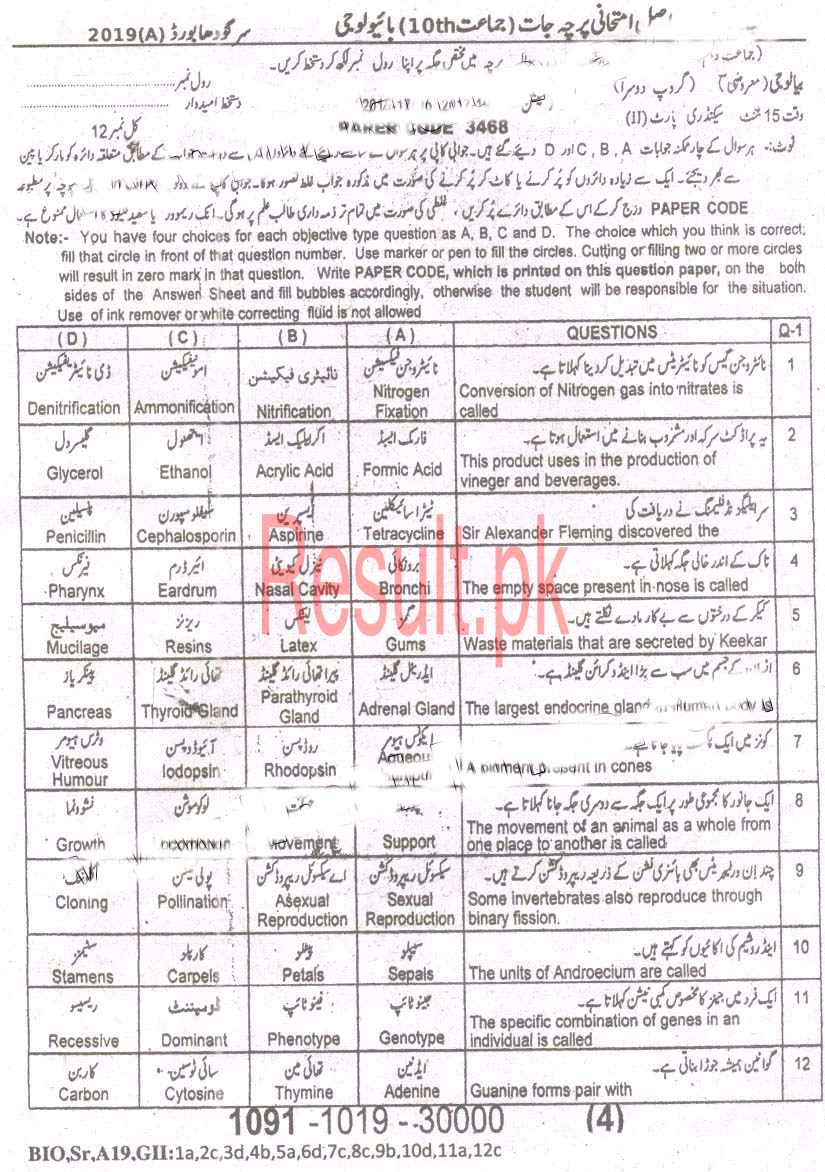 اصل امتحانی پرچہ جات (جماعت 10th) بائیولوجی سرگودھا بورڈ 2019 (A)
پرچہ میں مختص جگہ پر اپنا رول نمبر لکھ کر دستخط کریں۔
بیالوجی (معروضی) (گروپ دوسرا) رول نمبر
دستخط امیدوار
وقت 15 منٹ سیکنڈری پارٹ (II) کل نمبر 12
PAPER CODE 3468
نوٹ:- ہر سوال کے چار ممکنہ جوابات A , B , C اور D دیئے گئے ہیں۔ جوابی کاپی پر ہر سوال کے مطابق متعلقہ دائرہ کو مارکر یا پین
سے بھر دیجئے۔ ایک سے زیادہ دائروں کو پُر کرنے یا کاٹ کر پُر کرنے کی صورت میں مذکورہ جواب غلط تصور ہوگا۔ پرچہ پر مطبوعہ
PAPER CODE درج کر کے اس کے مطابق دائرے پُر کریں، غلطی کی صورت میں تمام تر ذمہ داری طالب علم پر ہوگی۔ انک ریمور یا سفید ممنوع ہے۔
Note:- You have four choices for each objective type question as A, B, C and D. The choice which you think is correct;
fill that circle in front of that question number. Use marker or pen to fill the circles. Cutting or filling two or more circles
will result in zero mark in that question. Write PAPER CODE, which is printed on this question paper, on the both
sides of the Answer Sheet and fill bubbles accordingly, otherwise the student will be responsible for the situation.
Use of ink remover or white correcting fluid is not allowed
(D) (C) (B) (A) QUESTIONS Q-1
ڈی نائیٹریفیکیشن امونیفیکیشن نائیٹری فیکیشن نائیٹروجن فیکسیشن نائٹروجن گیس کو نائیٹریٹس میں تبدیل کر دینا کہلاتا ہے۔ 1
Denitrification Ammonification Nitrification Nitrogen Fixation Conversion of Nitrogen gas into nitrates is
called
گلیسرول ایتھنول اکریلیک ایسڈ فارمک ایسڈ یہ پراڈکٹ سرکہ اور مشروب بنانے میں استعمال ہوتا ہے۔ 2
Glycerol Ethanol Acrylic Acid Formic Acid This product uses in the production of
vineger and beverages.
پنسیلین سیفلوسپورن ایسپرین ٹیٹراسائیکلین سر الیگزینڈر فلیمنگ نے دریافت کی 3
Penicillin Cephalosporin Aspirine Tetracycline Sir Alexander Fleming discovered the
فیرنکس ائیر ڈرم نیزل کیویٹی برونکائی ناک کے اندر خالی جگہ کہلاتی ہے۔ 4
Pharynx Eardrum Nasal Cavity Bronchi The empty space present in nose is called
میوسیلیج ریزنز لیٹکس گمز کیکر کے درختوں سے بے کار مادے نکلتے ہیں۔ 5
Mucilage Resins Latex Gums Waste materials that are secreted by Keekar
پینکریاز تھائی رائڈ گلینڈ پیراتھائی رائڈ گلینڈ ایڈرینل گلینڈ کے جسم میں سب سے بڑا اینڈوکرائن گلینڈ ہے۔ 6
Pancreas Thyroid Gland Parathyroid Gland Adrenal Gland The largest endocrine gland Human body is
وٹرس ہیومر آئیوڈوپسن روڈوپسن ایکوئس ہیومر کونز میں ایک 7
Vitreous Humour Iodopsin Rhodopsin Aqueous A pigment present in cones
نشوونما لوکوموشن حرکت ایک جانور کا مجموعی طور پر ایک جگہ سے دوسری جگہ جانا کہلاتا ہے۔ 8
Growth Locomotion Movement Support The movement of an animal as a whole from
one place to another is called
کلوننگ پولی نیشن اے سیکسوئل ریپروڈکشن سیکسوئل ریپروڈکشن چند ان ورٹیبریٹس بھی بائنری فشن کے ذریعہ ریپروڈکشن کرتے ہیں۔ 9
Cloning Pollination Asexual Reproduction Sexual Reproduction Some invertebrates also reproduce through
binary fission.
سٹیمنز کارپلز پیٹلز سیپلز اینڈروشیم کی اکائیوں کو کہتے ہیں۔ 10
Stamens Carpels Petals Sepals The units of Androecium are called
ریسیسو ڈومیننٹ فینوٹائپ جینوٹائپ ایک فرد میں جینز کا مخصوص کمبی نیشن کہلاتا ہے۔ 11
Recessive Dominant Phenotype Genotype The specific combination of genes in an
individual is called
کاربن سائی ٹوسین تھائی مین ایڈنین گوانین ہمیشہ جوڑا بناتی ہے۔ 12
Carbon Cytosine Thymine Adenine Guanine forms pair with
1091 -1019 --30000 (4)
BIO,Sr,A19,GII:1a,2c,3d,4b,5a,6d,7c,8c,9b,10d,11a,12c
Result.pk